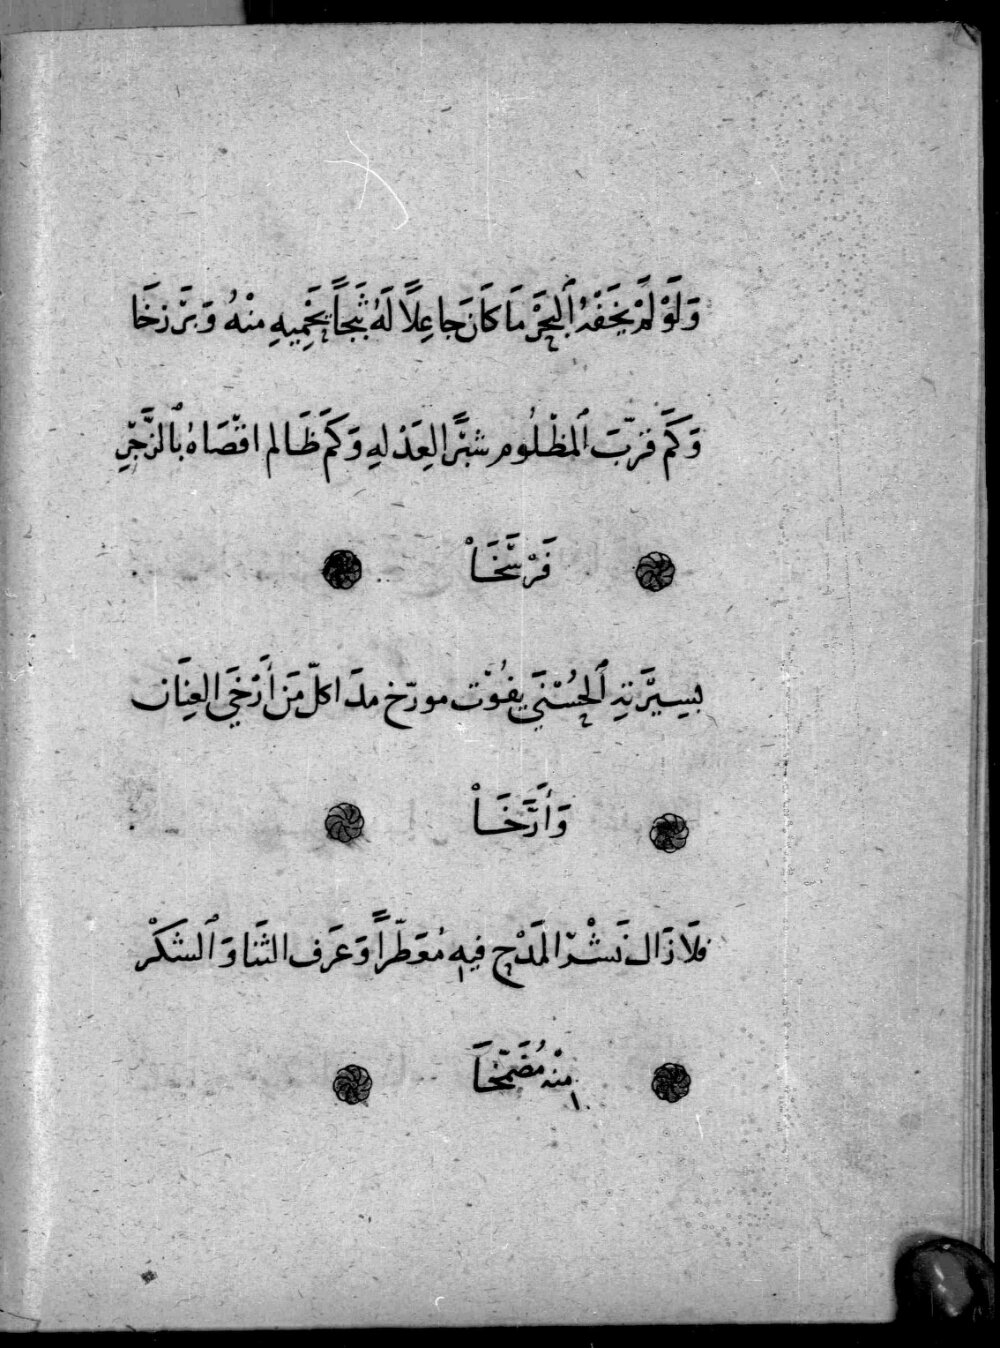 وَلَوْ لَمْ يَخَفْهُ ٱلبَحْرُ مَا كَانَ جَاعِلًا لَهُ ثَبَجًا يَحْمِيهِ مِنْهُ وَبَرْزخَا
وَكَمْ قرّبَ ٱلمظْلُوم شبْرًا لعَدْلهِ وَكَمْ ظَالم اقْصَاهُ بٱلزَّجْرِ
فَرْسَخَاْ
بسِيرَتهِ ٱلحُسْنَى يفُوْت مورّخ مدَا كلّ مَن أَرْخَى العِنَان
وَأَرَّخَاْ
فلَا زَال نَشْرُ المَدْح فيهِ مُعَطّرًا وَعَرف الثَنا وَٱلشكْر
منْه مُضَمّخَا